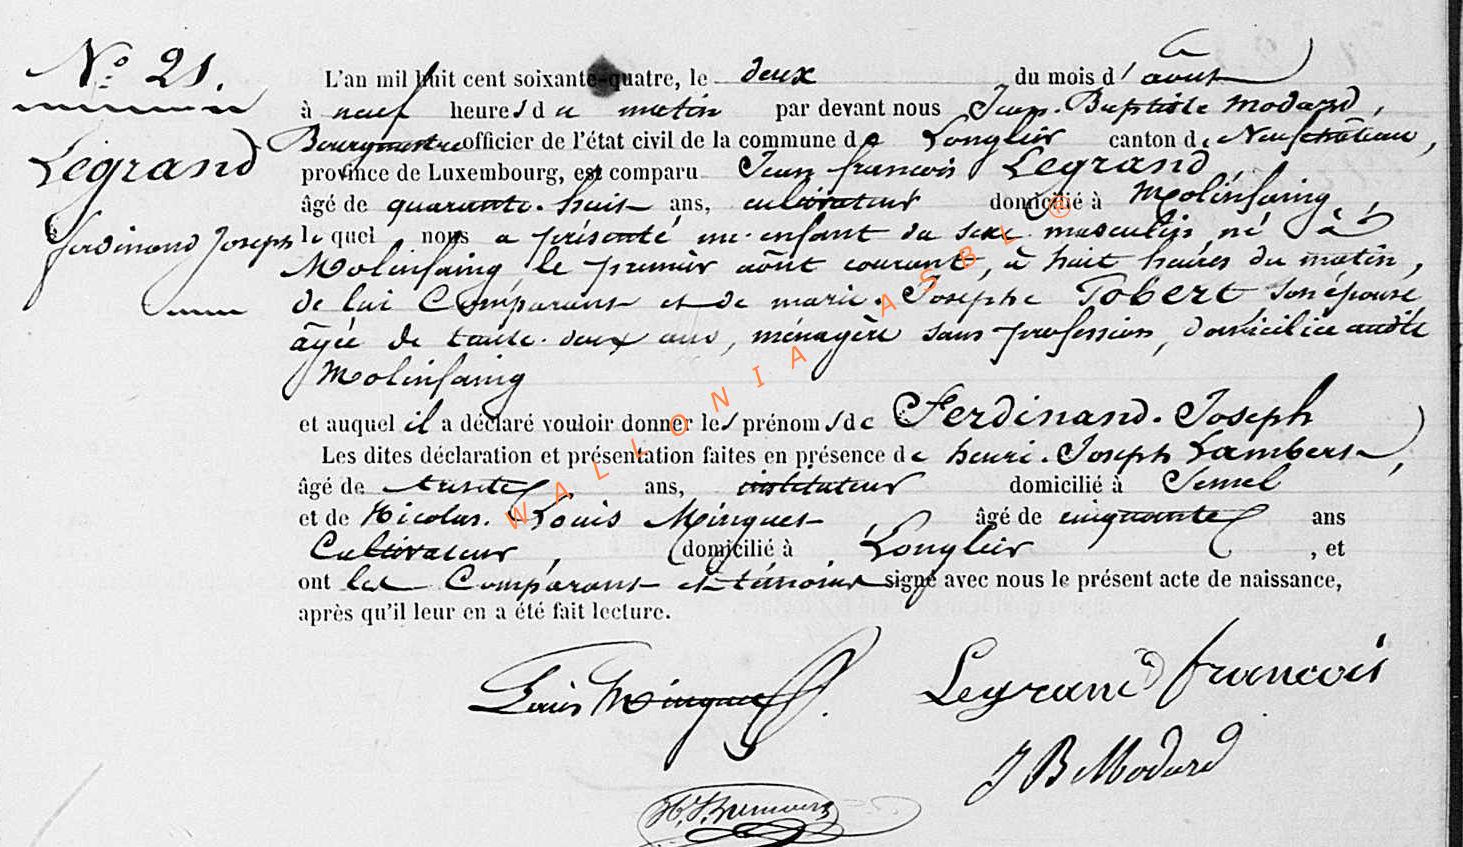 N° 21.
Legrand
ferdinand Joseph
L'an mil huit cent soixante-quatre, le deux du mois d'août
à neuf heures du matin par devant nous Jean-Baptiste Modard,
Bourgmestre officier de l'état civil de la commune de Longlier canton de Neufchâteau,
province de Luxembourg, est comparu Jean françois Legrand
âgé de quarante-huit ans, cultivateur domicilié à Molinfaing
lequel nous a présenté un enfant du sexe masculin, né à
Molinfaing le premier août courant, à huit heures du matin,
de lui Comparant et de marie-Josephe Tobert son épouse
âgée de trente-deux ans, ménagère sans profession, domiciliée audit
Molinfaing
et auquel il a déclaré vouloir donner les prénoms de Ferdinand-Joseph
Les dites déclaration et présentation faites en présence de henri-Joseph Lambert,
âgé de trente, ans, instituteur domicilié à Semel
et de Nicolas-Louis Minguet, âgé de cinquante ans
Cultivateur, domicilié à Longlier, et
ont les Comparant et témoins signé avec nous le présent acte de naissance,
après qu'il leur en a été fait lecture.
Louis Minguet
Legrand françois
J B Modard
WALLONIA ASBL ®